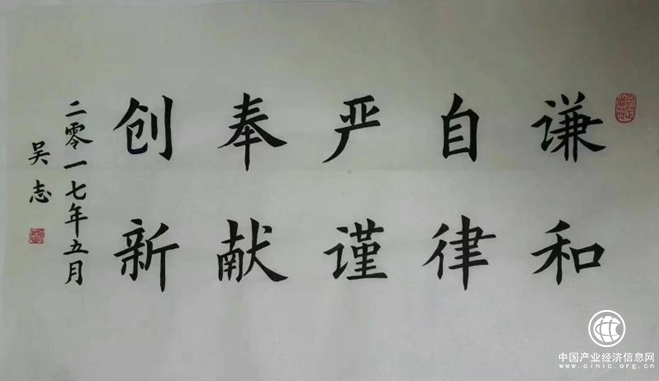 谦和
自律
严谨
奉献
创新
二零一七年五月
吴志
中国产业经济信息网
www.cinic.org.cn